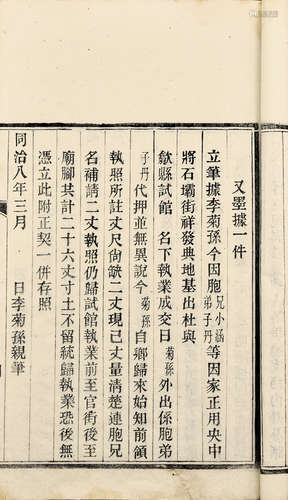 又墨據一件
立筆據李菊孫今因胞兄小涵弟子丹等因家正用央中
將石壩街祥發典地基出杜與
歙縣試館 名下執業成交日菊孫外出係胞弟
子丹代押並無異說今菊孫自鄉歸來始知前領
執照所註丈尺尚缺二丈現已丈量清楚連胞兄
名補請二丈執照仍歸試館執業前至官街後至
廟腳共計二十六丈寸土不留統歸執業恐後無
憑立此附正契一併存照
同治八年三月 日李菊孫親筆